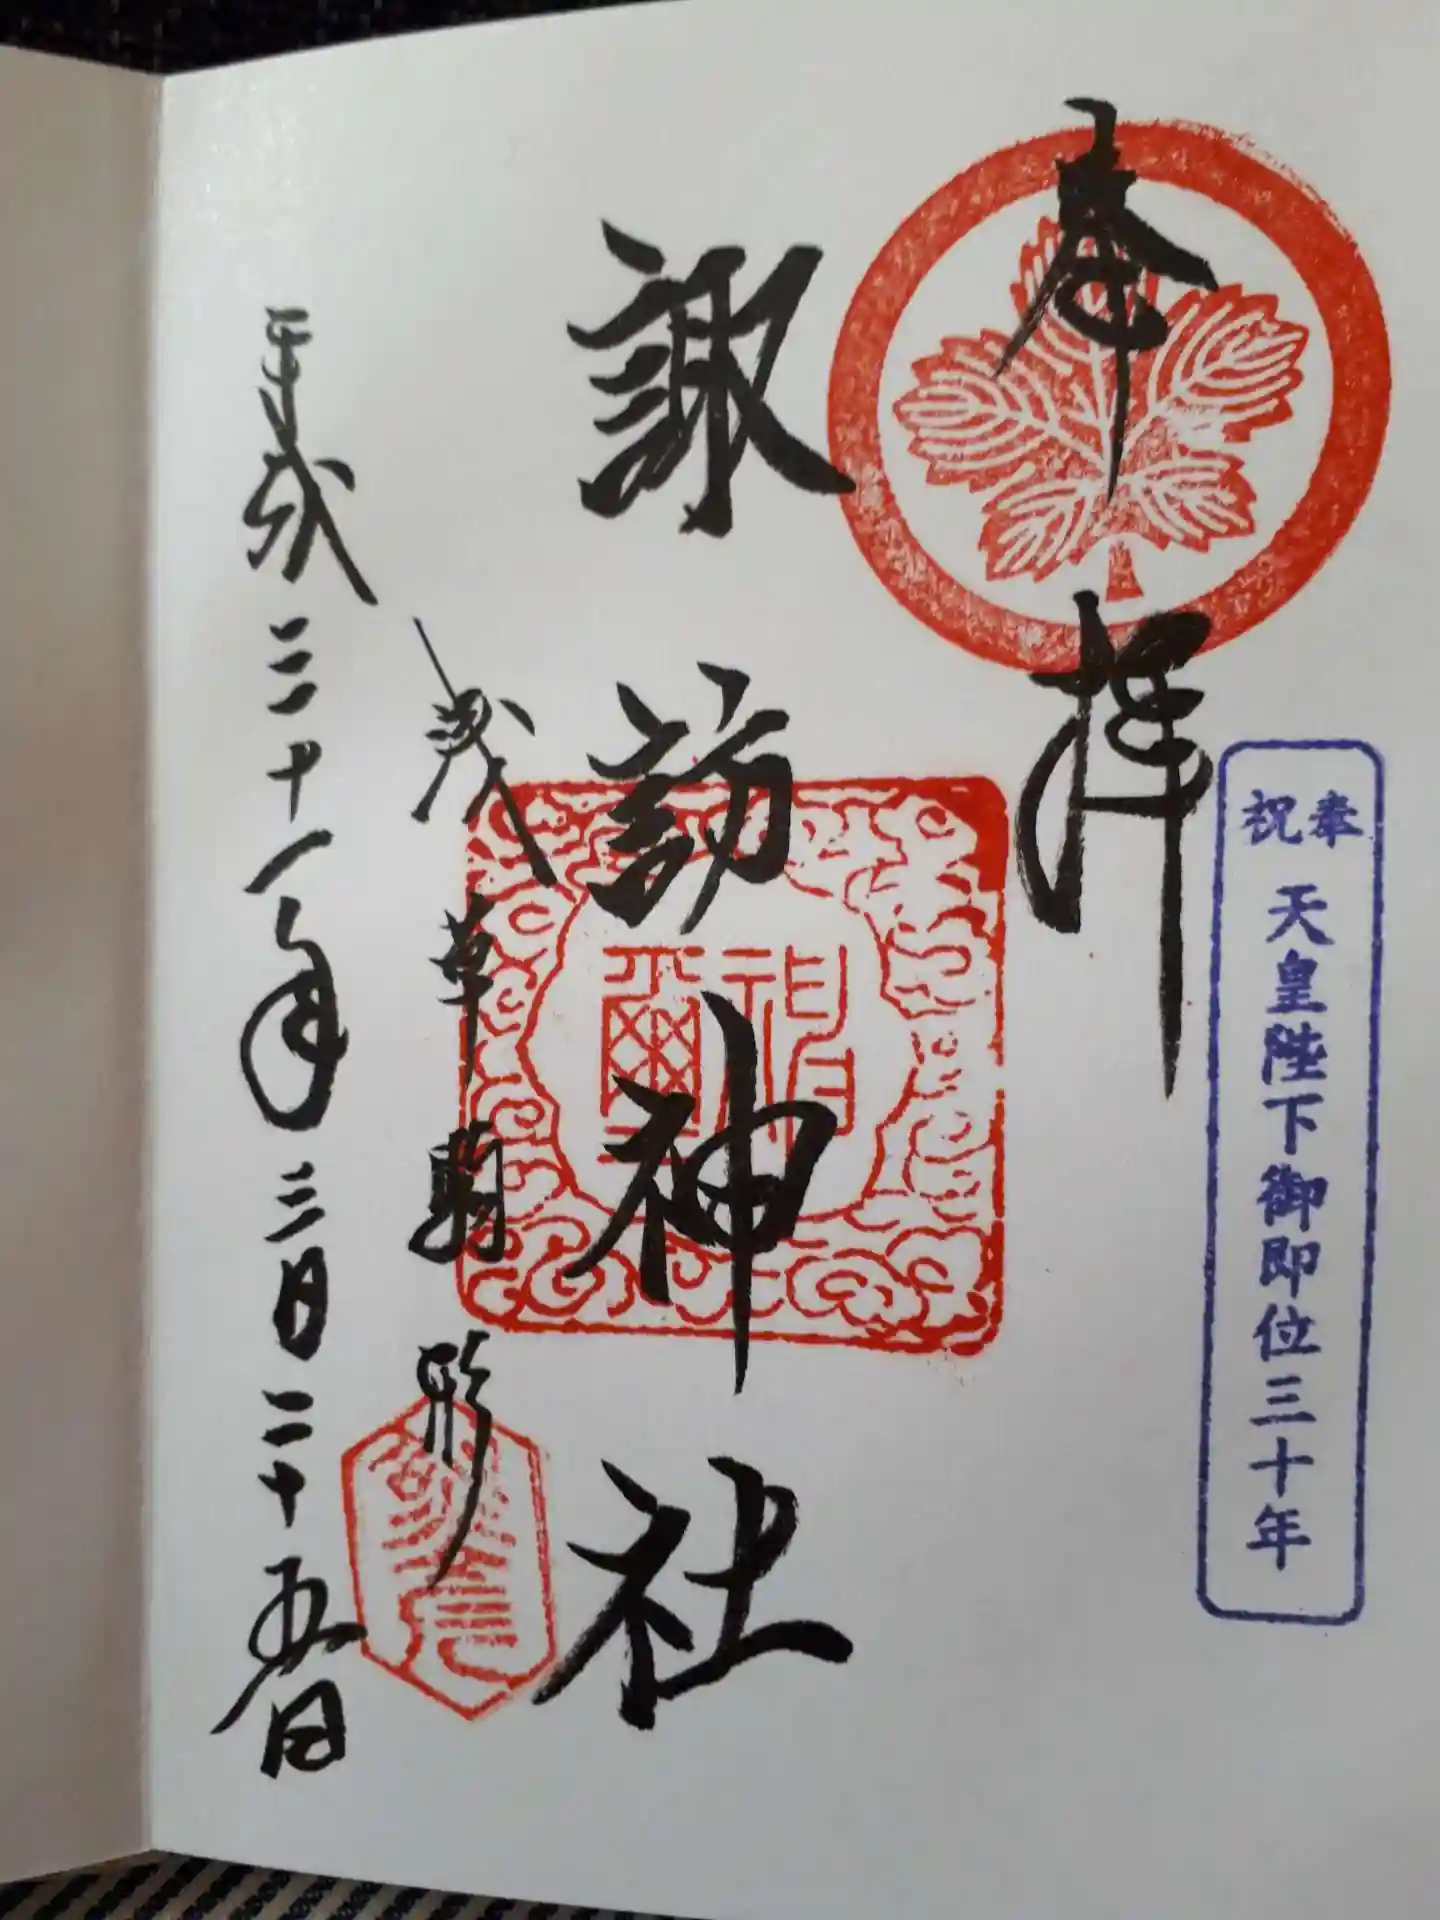 奉祝
天皇陛下御即位三十年
奉拝
諏訪神社
神璽
浅草駒形
平成三十一年三月二十五日